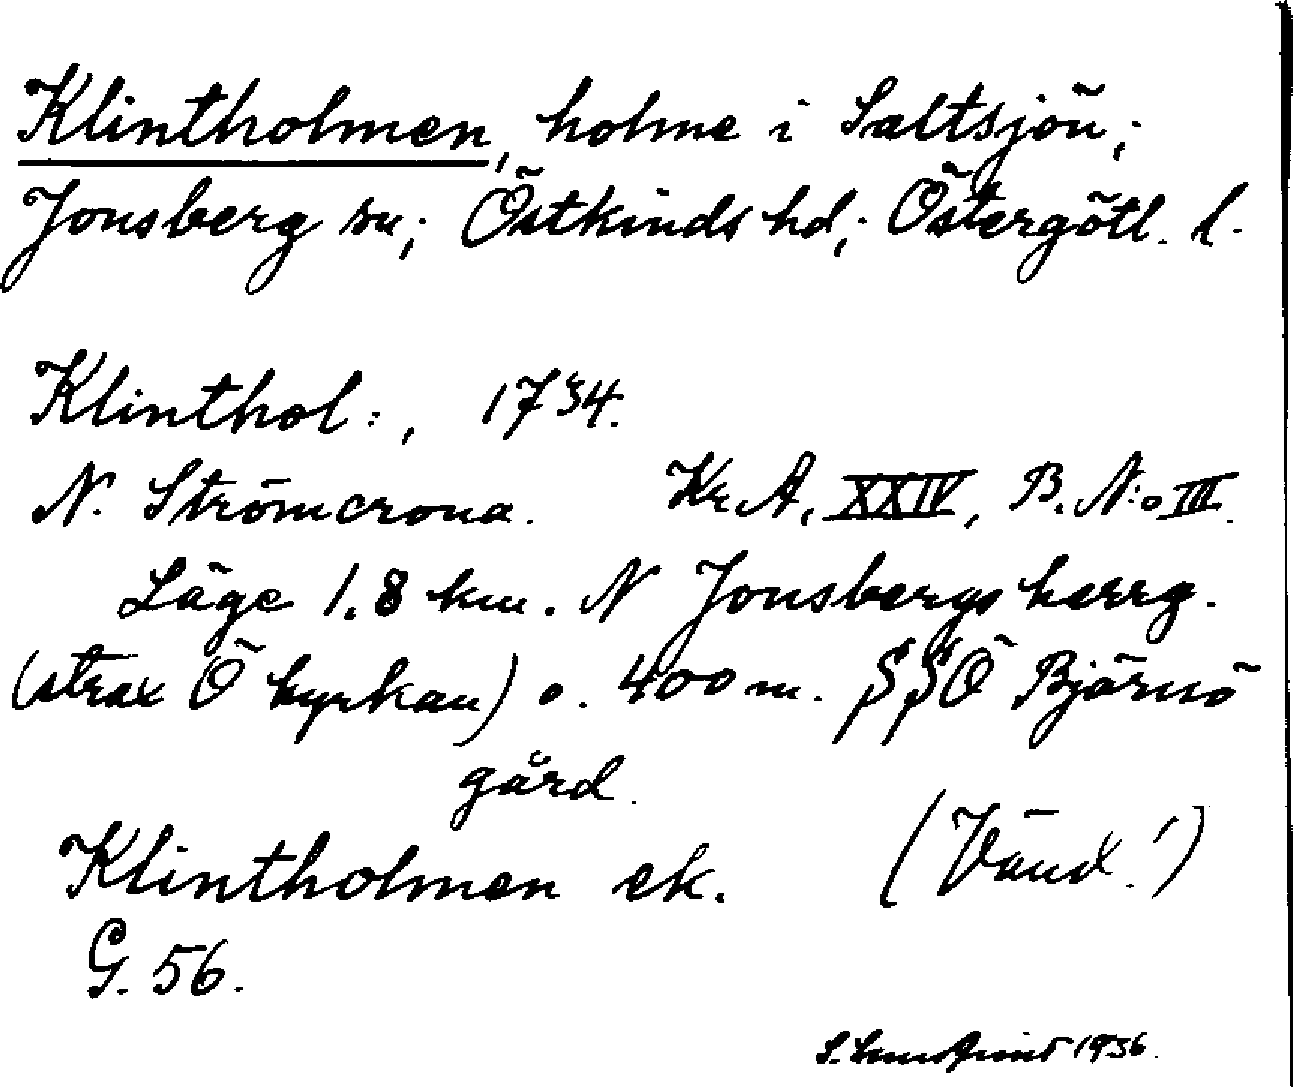 Klintholmen, holme i Saltsjön;
Jonsberg sn; Östkinds hd; Östergötl. l.
Klinthol:, 1734.
N. Strömcrona. Kr. A, XXIV, B. N:o III.
Läge 1.8 km. N Jonsbergs herrg.
(strax Ö kyrkan) o. 400 m. SSÖ Björnö
gård.
Klintholmen ek. (Vänd!)
G. 56.
S. 1936.